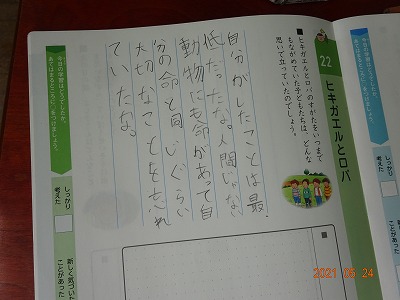 22
ヒキガエルとロバ
■ヒキガエルとロバのすがたをいつまで
もながめていた子どもたちは、どんな
思いで立っていたのでしょう。
自分がしたことは最
低だったな。人間じゃない
動物にも命があって自
分の命と同じぐらい
大切なことを忘れ
ていたな。
今日の学習はどうでしたか。
あてはまるところに、○をつけましょう。
しっかり
考えた
新しく気づいた
ことがあった
2021 06 24